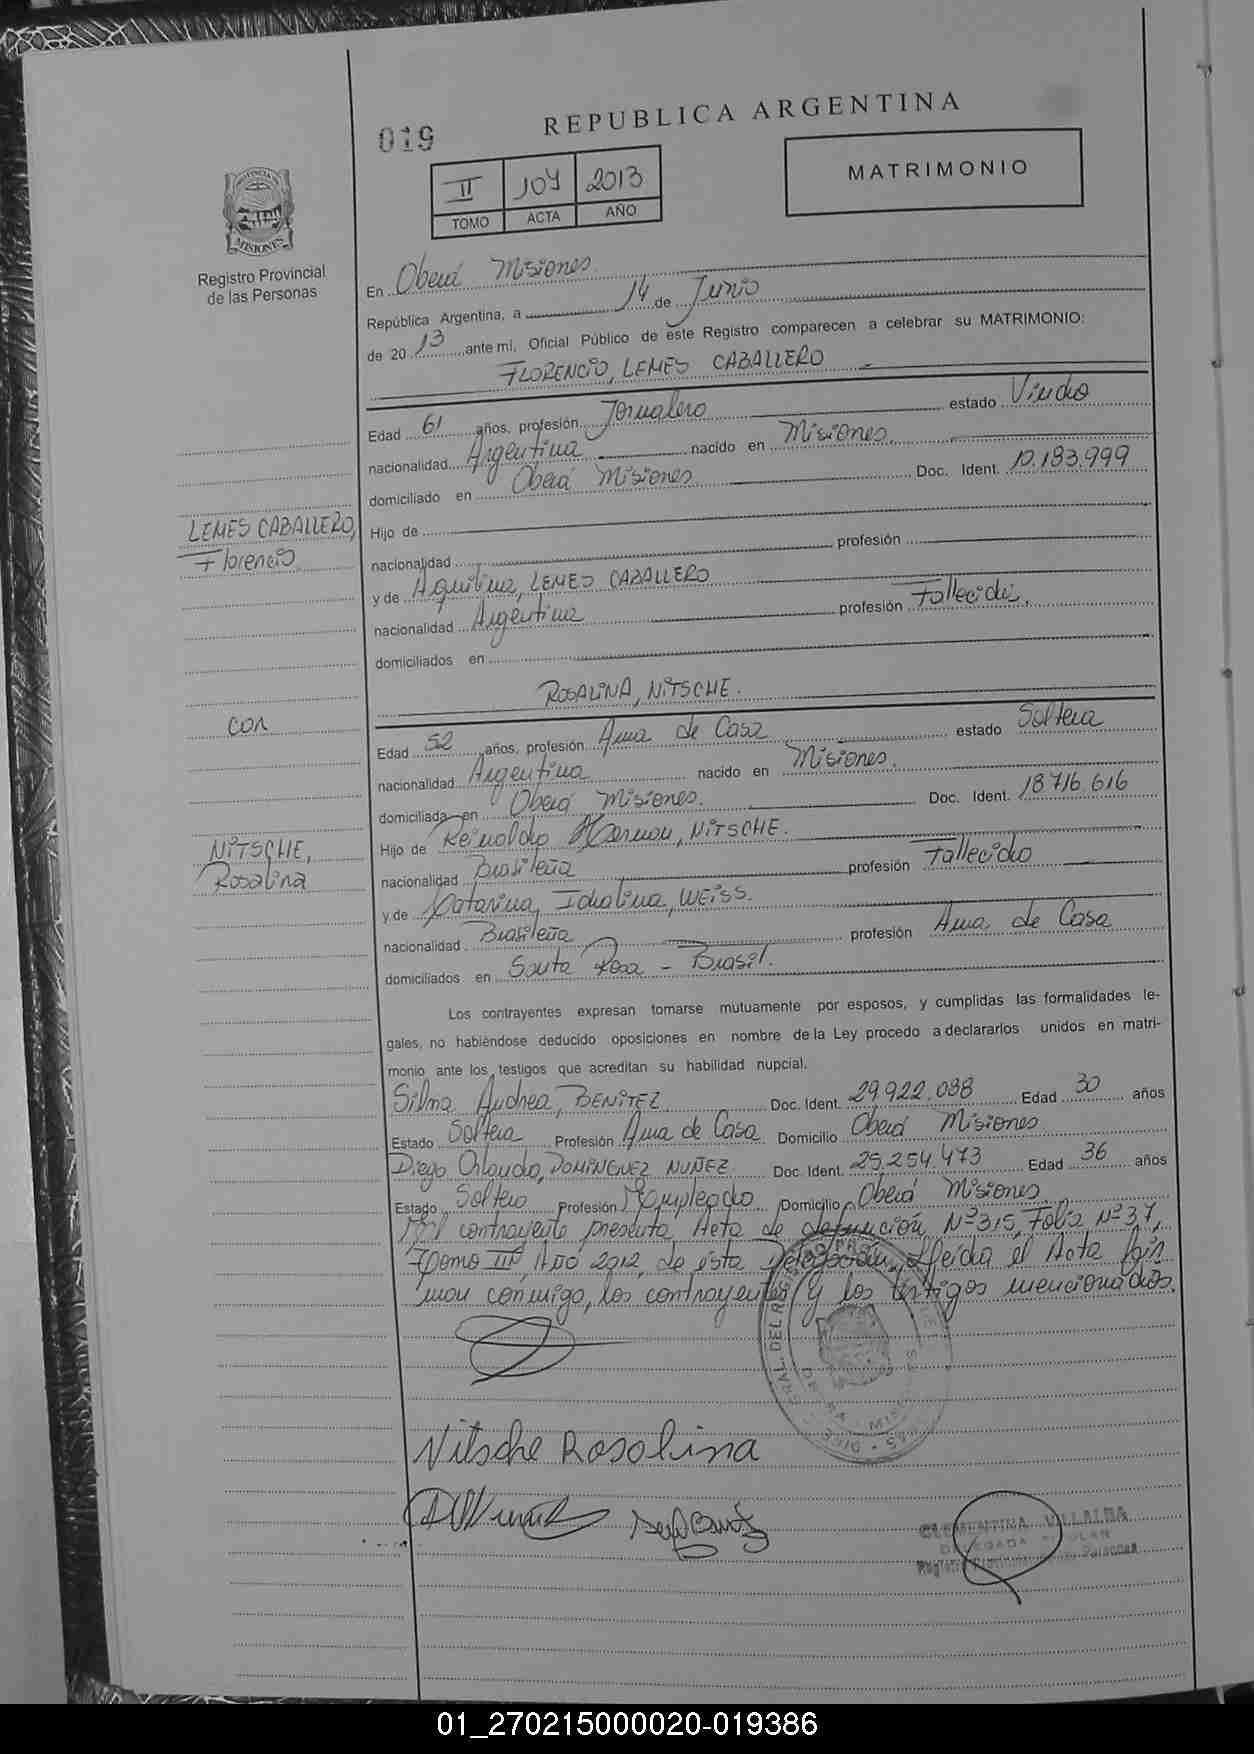 019
REPUBLICA ARGENTINA
II 104 2013
TOMO ACTA AÑO
MATRIMONIO
PROVINCIA DE
MISIONES
Registro Provincial
de las Personas
En Oberá Misiones
República Argentina, a 14 de Junio
de 20 13 ante mi, Oficial Público de este Registro comparecen a celebrar su MATRIMONIO:
FLORENCIO, LEMES CABALLERO
Edad 61 años, profesión Jornalero estado Viudo
nacionalidad Argentina nacido en Misiones.
domiciliado en Oberá Misiones Doc. Ident. 10.183.999
LEMES CABALLERO,
Florencio
Hijo de
nacionalidad profesión
y de Aquilina, LEMES CABALLERO
nacionalidad Argentina profesión Fallecida.
domiciliados en
ROSALINA, NITSCHE.
con
Edad 52 años, profesión Ama de Casa estado Soltera
nacionalidad Argentina nacido en Misiones.
domiciliada en Oberá Misiones. Doc. Ident. 18716.616
NITSCHE,
Rosalina
Hijo de Reinoldo Herman, NITSCHE.
nacionalidad Brasileña profesión Fallecido
y de Catarina, Idalina, WEISS.
nacionalidad Brasileña profesión Ama de Casa
domiciliados en Santa Rosa - Brasil.
Los contrayentes expresan tomarse mutuamente por esposos, y cumplidas las formalidades le-
gales, no habiéndose deducido oposiciones en nombre de la Ley procedo a declararlos unidos en matri-
monio ante los testigos que acreditan su habilidad nupcial.
Silma Andrea, BENITEZ Doc. Ident. 29.922.088 Edad 30 años
Estado Soltera Profesión Ama de Casa Domicilio Oberá Misiones
Diego Orlando, DOMINGUEZ NUÑEZ Doc. Ident. 25.254.473 Edad 36 años
Estado Soltero Profesión Empleado Domicilio Oberá Misiones
El contrayente presenta Acta de defunción Nº 315, Folio Nº 37,
Tomo IIIº, Año 2012, de ésta Delegación. Leída el Acta fir
man conmigo, los contrayentes y los testigos mencionados.
Nitsche Rosolina
CLEMENTINA VILLALBA
DELEGADA TITULAR
01_270215000020-019386